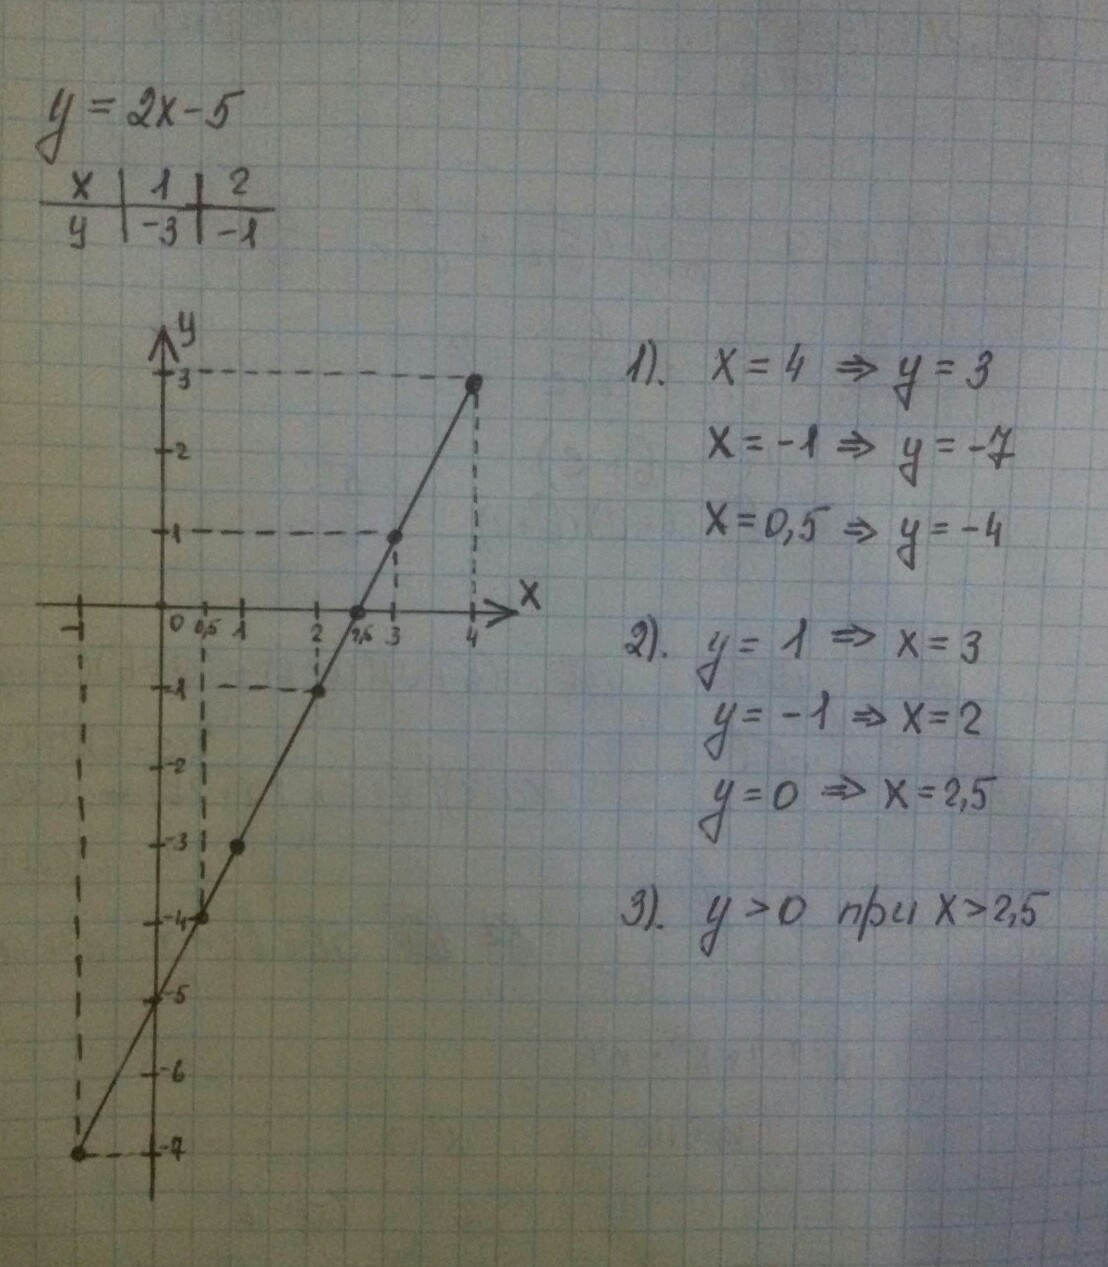 y = 2x - 5
x | 1 | 2
y | -3 | -1
y
3
1). x = 4 ⇒ y = 3
2
x = -1 ⇒ y = -7
1
x = 0,5 ⇒ y = -4
x
-1 0 0,5 1 2 2,5 3 4
2). y = 1 ⇒ x = 3
-1
y = -1 ⇒ x = 2
-2
y = 0 ⇒ x = 2,5
-3
3). y > 0 при x > 2,5
-4
-5
-6
-7